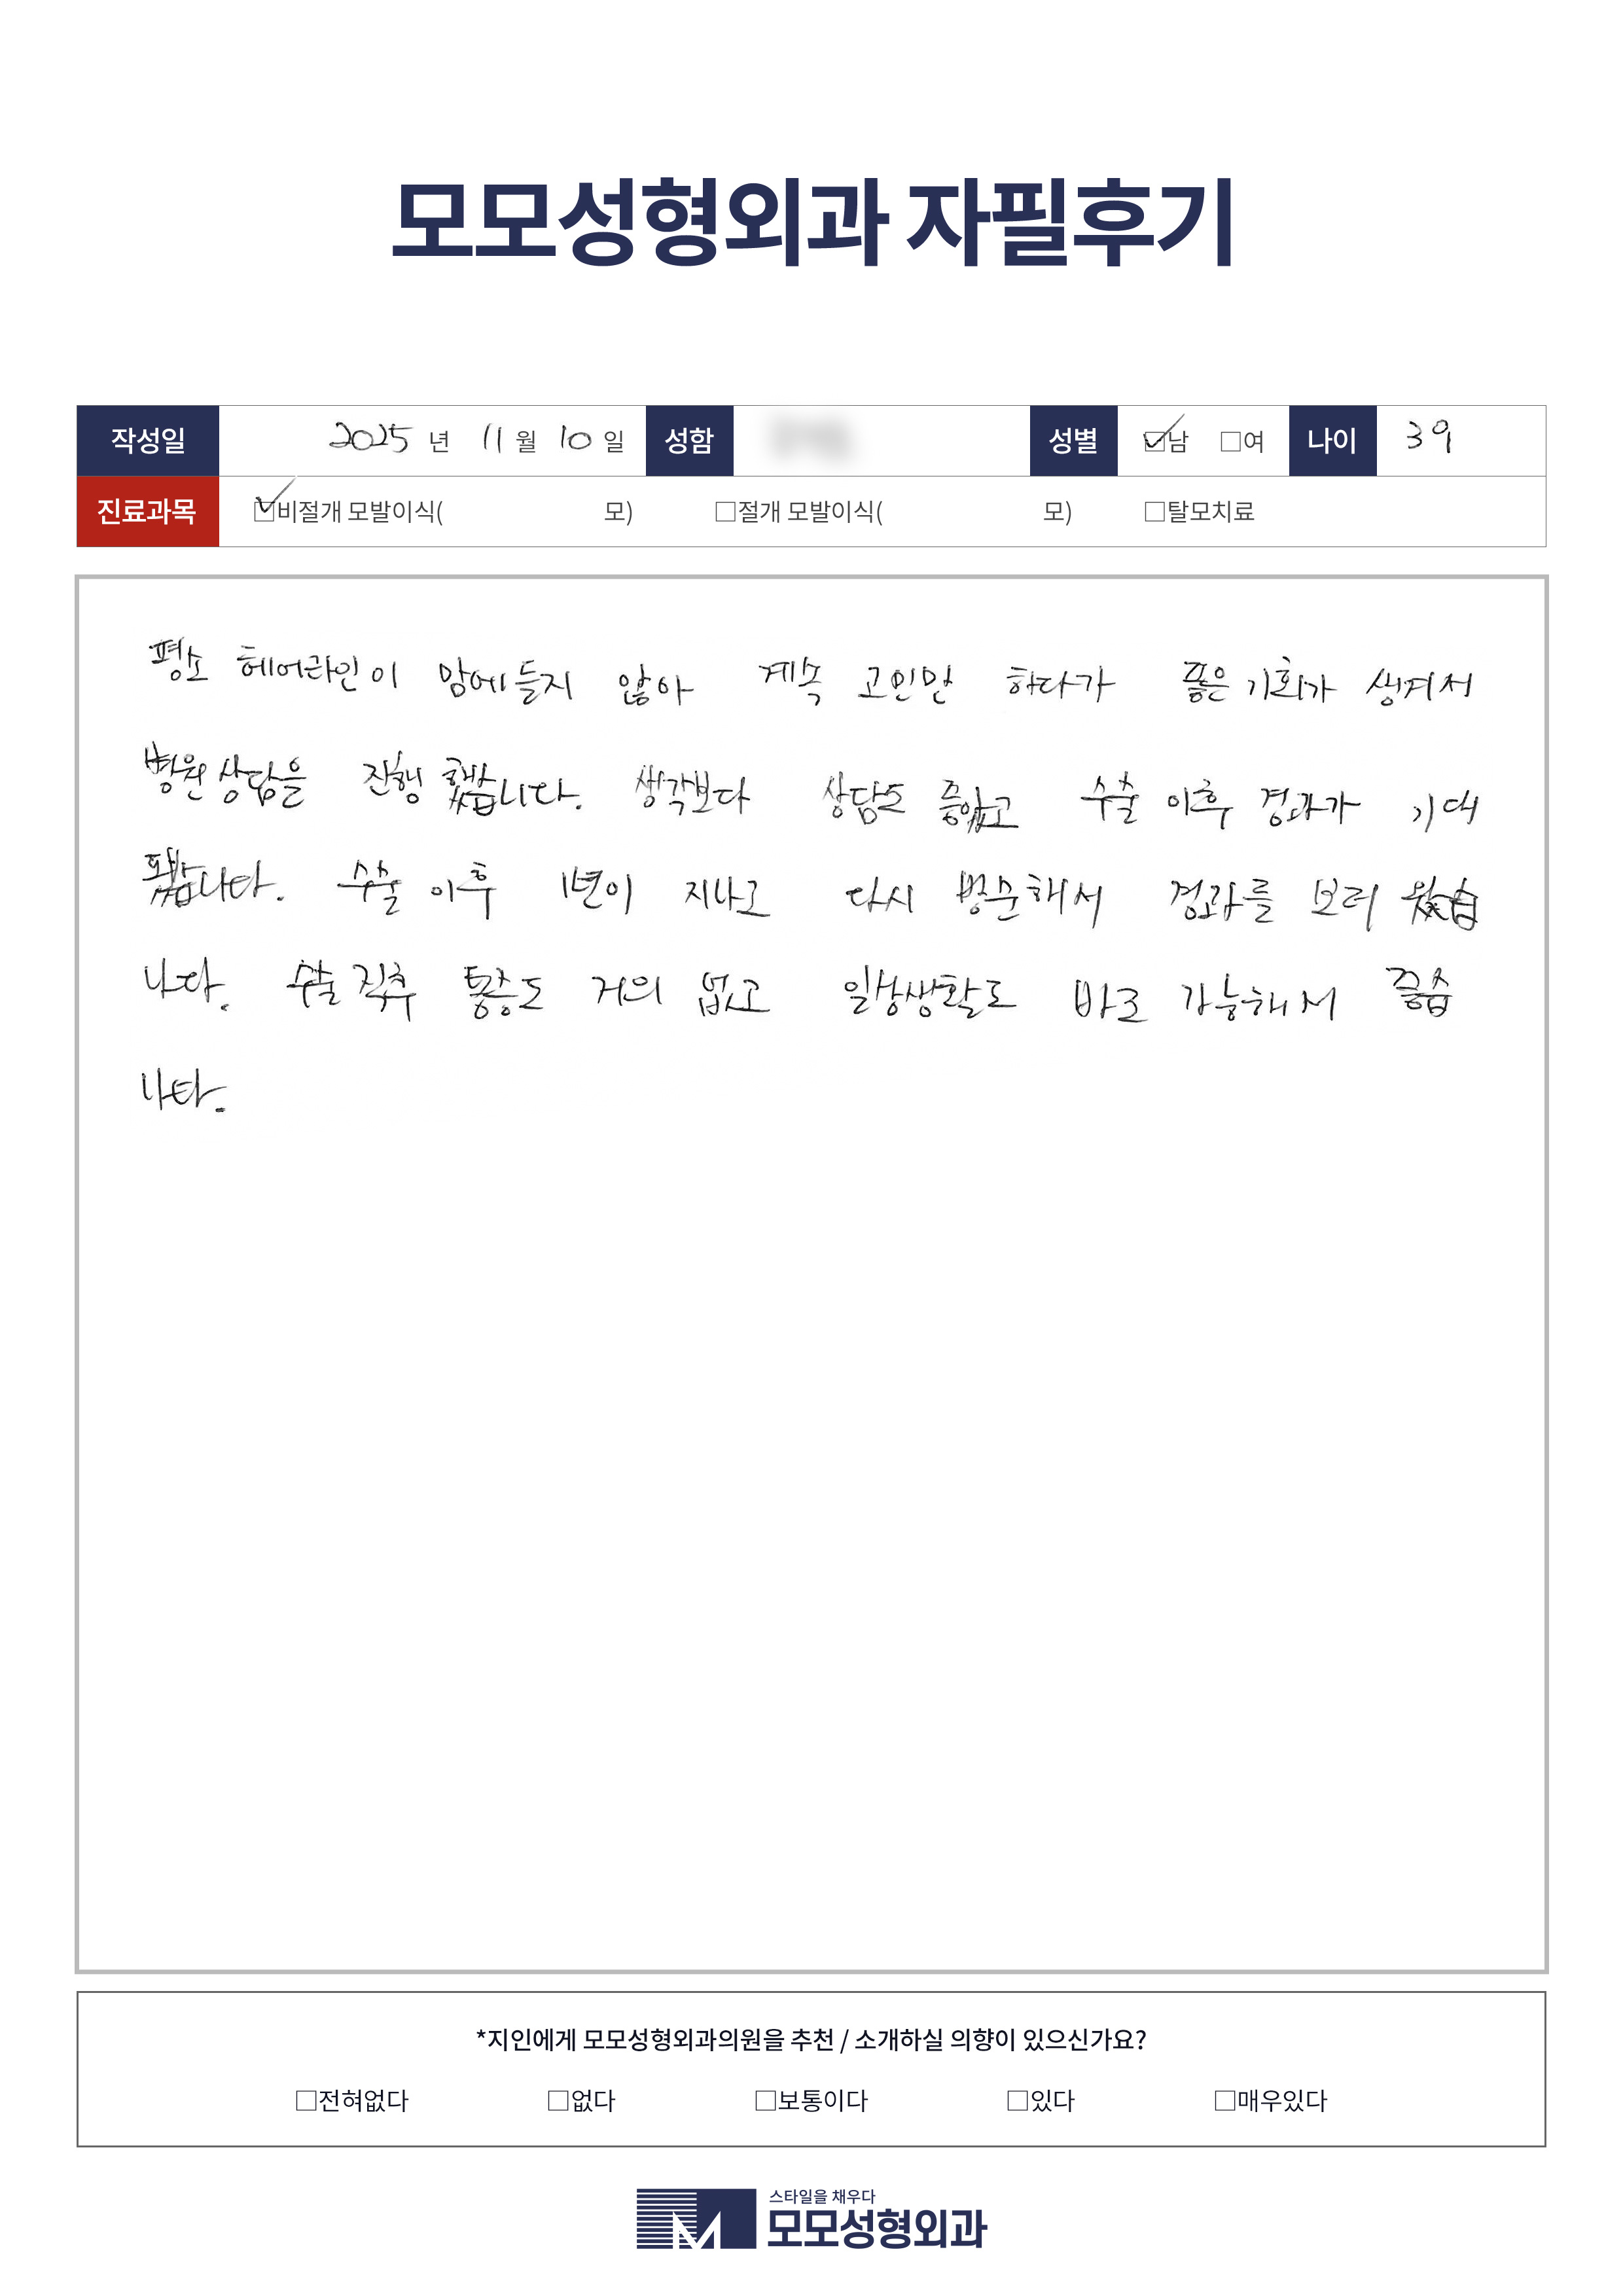 모모성형외과 자필후기
작성일 2025 년 11 월 10 일 성함 성별 ☑남 □여 나이 39
진료과목 ☑비절개 모발이식( 모) □절개 모발이식( 모) □탈모치료
평소 헤어라인이 맘에들지 않아 계속 고민만 하다가 좋은 기회가 생겨서
병원상담을 진행 했습니다. 생각보다 상담도 좋았고 수술 이후 경과가 기대
됐습니다. 수술 이후 1년이 지나고 다시 방문해서 경과를 보러 왔습
니다. 수술직후 통증도 거의 없고 일상생활도 바로 가능해서 좋습
니다.
*지인에게 모모성형외과의원을 추천 / 소개하실 의향이 있으신가요?
□전혀없다 □없다 □보통이다 □있다 □매우있다
스타일을 채우다
모모성형외과